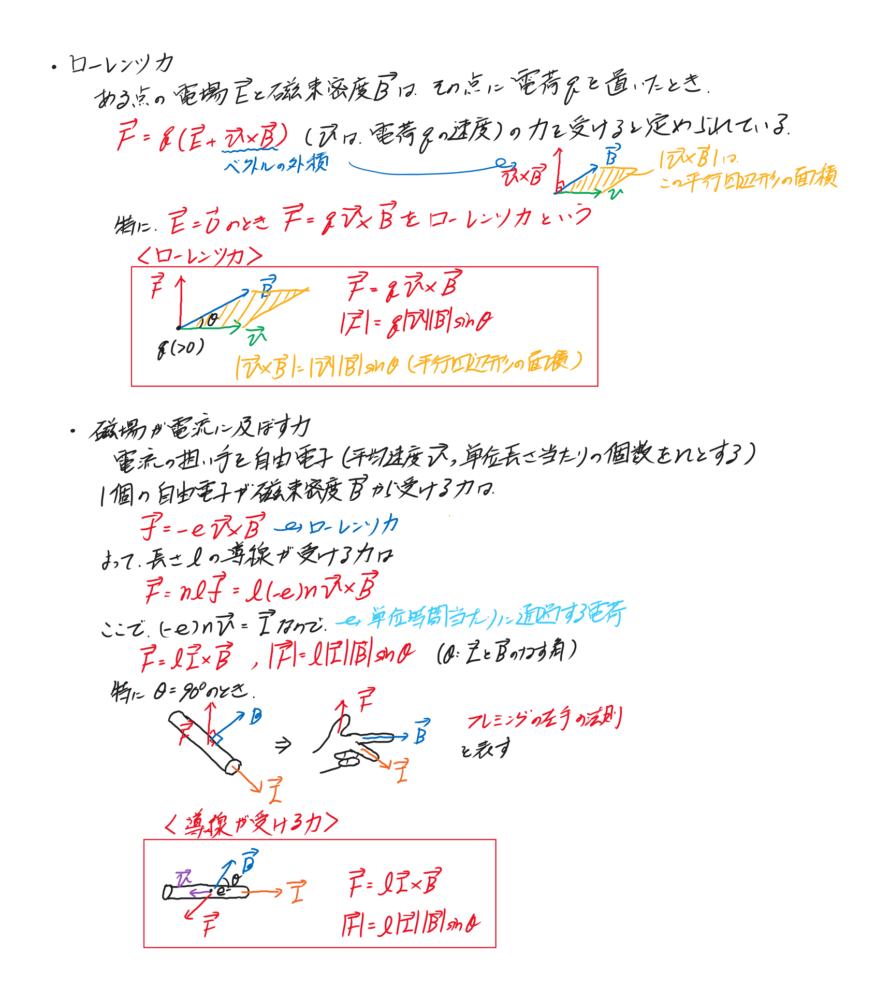 ・ローレンツ力
ある点の電場E→と磁束密度B→は、その点に電荷qを置いたとき、
F→=q(E→+v→×B→) (v→は、電荷qの速度)の力を受けると定められている。
ベクトルの外積
v→×B→
B→
v→
|v→×B→|は
この平行四辺形の面積
特に、E→=0→のとき F→=qv→×B→をローレンツ力という
<ローレンツ力>
F→
B→
θ
v→
q(>0)
F→=qv→×B→
|F→|=q|v→||B→|sinθ
|v→×B→|=|v→||B→|sinθ (平行四辺形の面積)
・磁場が電流に及ぼす力
電流の担い手を自由電子(平均速度v→、単位長さ当たりの個数をnとする)
1個の自由電子が磁束密度B→から受ける力は、
f→=-ev→×B→ ローレンツ力
よって、長さlの導線が受ける力は
F→=nlf→=l(-e)nv→×B→
ここで、(-e)nv→=I→なので、 単位時間当たりに通過する電荷
F→=lI→×B→ , |F→|=l|I→||B→|sinθ (θ:I→とB→のなす角)
特にθ=90°のとき、
F→
B
I→
⇒
F→
B→
I→
フレミングの左手の法則
と表す
<導線が受ける力>
v→
B→
θ
e-
I→
F→
F→=lI→×B→
|F→|=l|I→||B→|sinθ